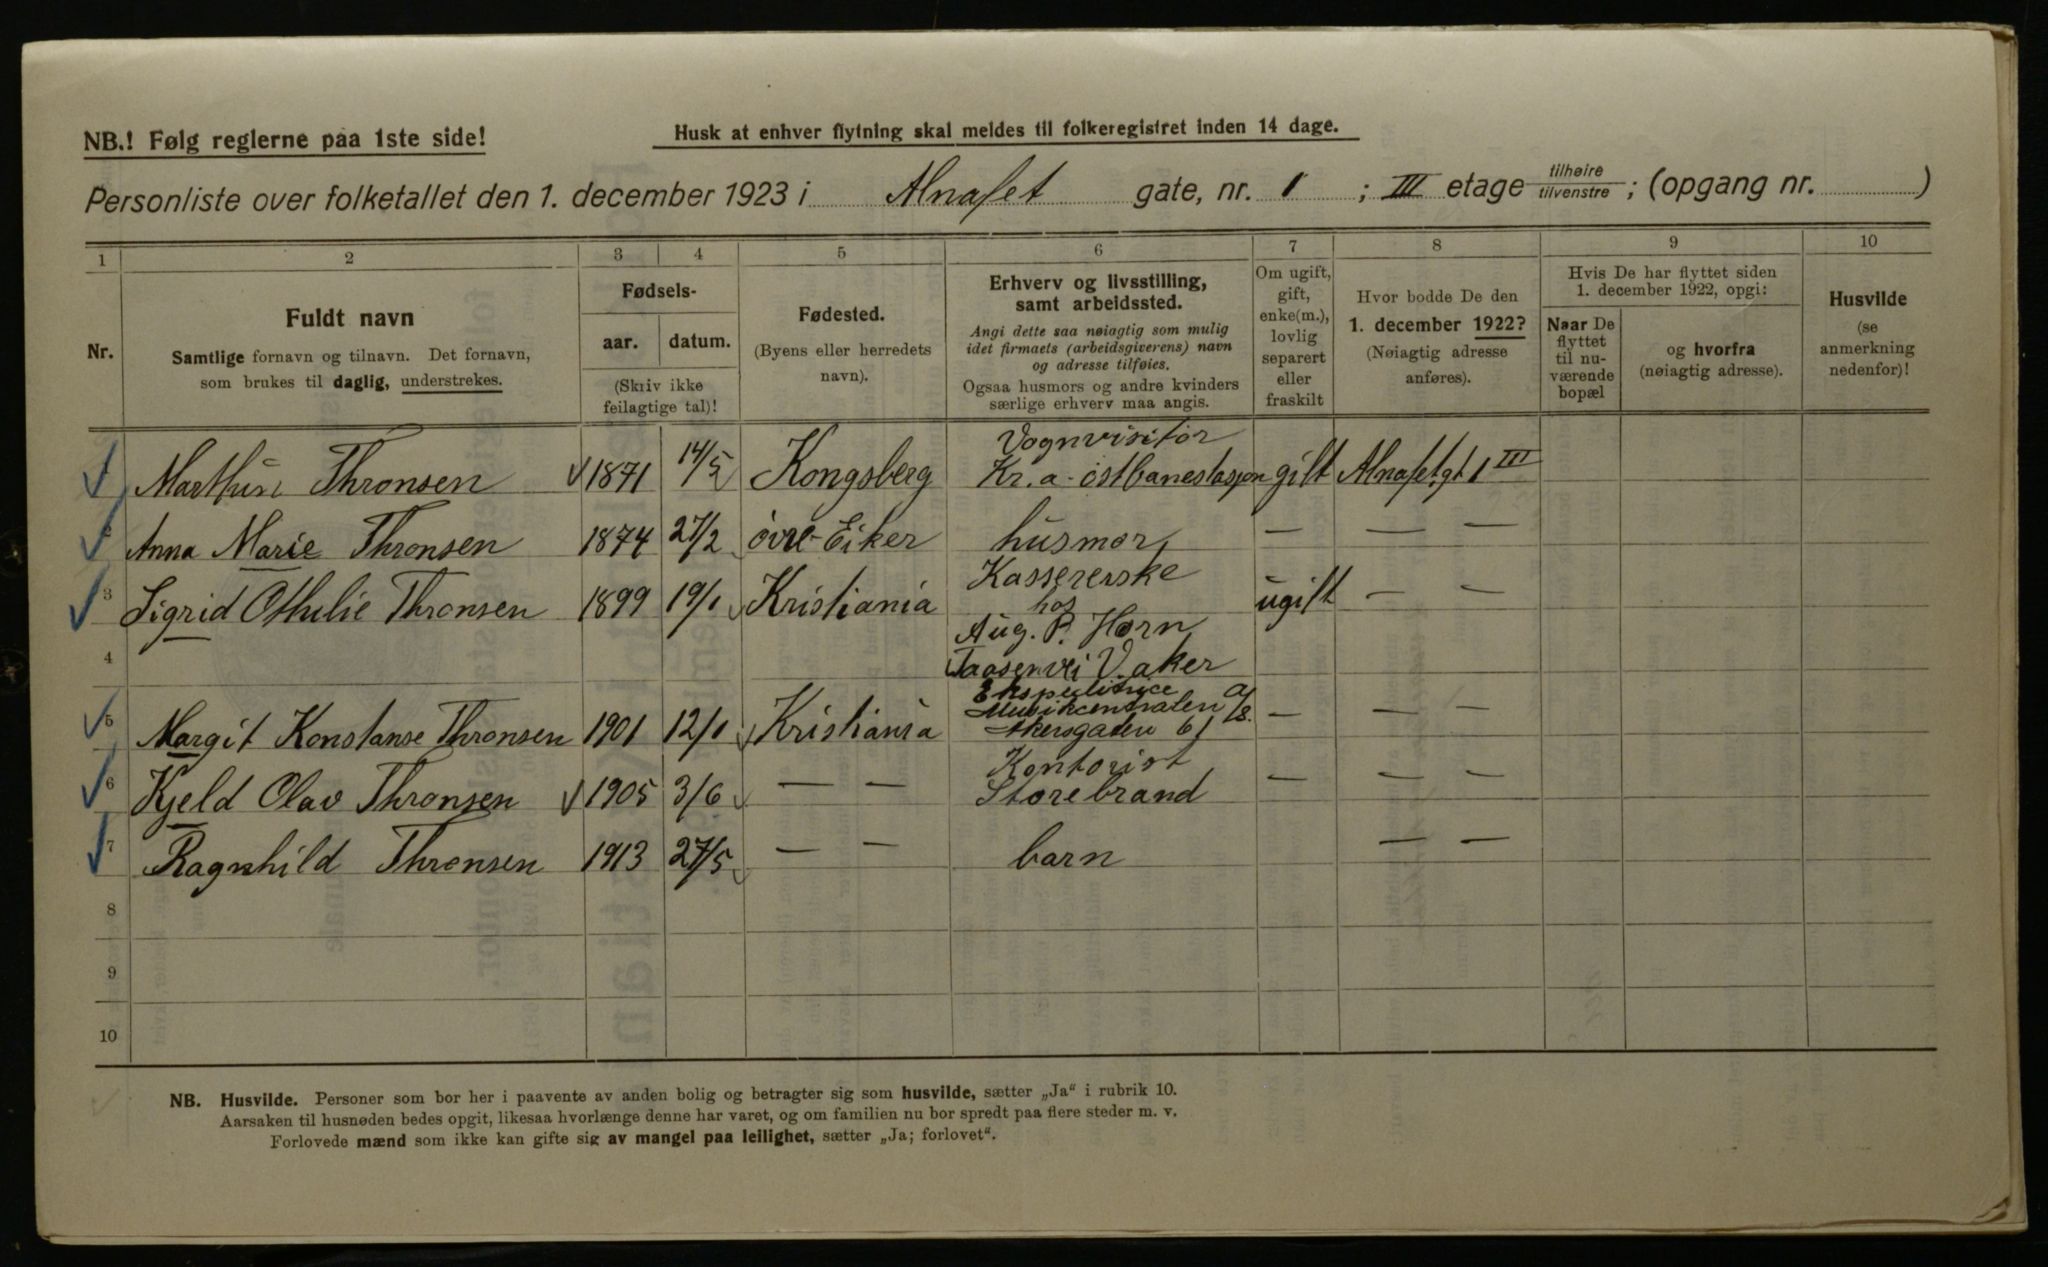 NB.! Følg reglerne paa 1ste side!
Husk at enhver flytning skal meldes til folkeregistret inden 14 dage.
Personliste over folketallet den 1. december 1923 i Alnafet gate, nr. 1 ; III etage tilhøire tilvenstre ; (opgang nr. )
1 2 3 4 5 6 7 8 9 10
Nr.
Fuldt navn
Samtlige fornavn og tilnavn. Det fornavn,
som brukes til daglig, understrekes.
Fødsels-
aar. datum.
(Skriv ikke
feilagtige tal)!
Fødested.
(Byens eller herredets
navn).
Erhverv og livsstilling,
samt arbeidssted.
Angi dette saa nøiagtig som mulig
idet firmaets (arbeidsgiverens) navn
og adresse tilføies.
Ogsaa husmors og andre kvinders
særlige erhverv maa angis.
Om ugift,
gift,
enke(m.),
lovlig
separert
eller
fraskilt
Hvor bodde De den
1. december 1922?
(Nøiagtig adresse
anføres).
Hvis De har flyttet siden
1. december 1922, opgi:
Naar De
flyttet
til nu-
værende
bopæl
og hvorfra
(nøiagtig adresse).
Husvilde
(se
anmerkning
nedenfor)!
Vognvisitør
1 Marthin Thronsen 1871 14/5 Kongsberg Kr.a. østbanestasjon gift Alnafetgt 1 III
2 Anna Marie Thronsen 1874 27/2 øvre-Eiker husmor — — —
Kassererske
3 Sigrid Othilie Thronsen 1899 19/1 Kristiania hos ugift — —
Aug. P. Horn
4 Taasenvei V. aker
Ekspeditrice
5 Margit Konstanse Thronsen 1901 12/1 Kristiania Musikcentralen a/s. — — —
Akersgaten 61
Kontorist
6 Kjeld Olav Thronsen 1905 3/6 — — Storebrand — — —
7 Ragnhild Thronsen 1913 27/5 — — barn — —
8
9
10
NB. Husvilde. Personer som bor her i paavente av anden bolig og betragter sig som husvilde, sætter „Ja“ i rubrik 10.
Aarsaken til husnøden bedes opgit, likesaa hvorlænge denne har varet, og om familien nu bor spredt paa flere steder m. v.
Forlovede mænd som ikke kan gifte sig av mangel paa leilighet, sætter „Ja; forlovet“.